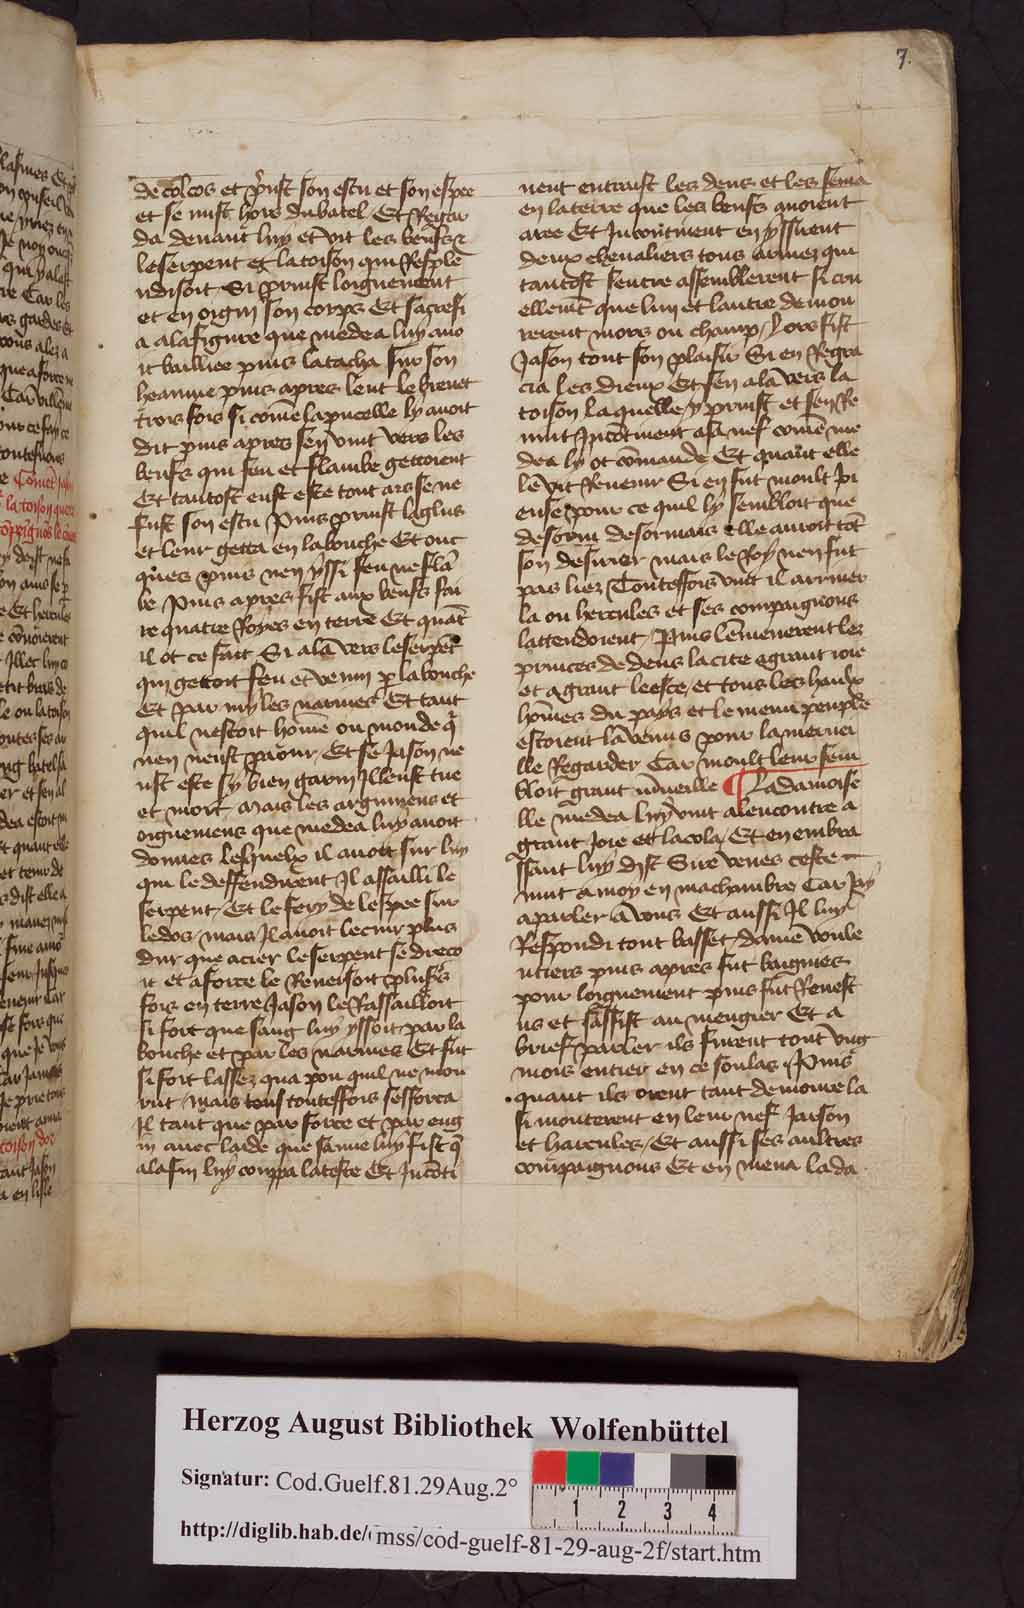 7.
de colcos et p̃nst son escu et son espee
et se mist hors du batel Et Regar
da deuant luy et vit les beufs ⁊
le serpent et la toison qui Resplē
ndisoit Si prinst loignement
et en oigni son corps Et sacrefi
a a la figure que medea luy auo
it bailliee puis latacha sur son
heaume puis apres leut le breuet
trois fois si cōme la pucelle ly auoit
dit puis apres sen vint vers les
beufs qui feu et flambe gettoient
Et tantost eust este tout ars se ne
fust son escu Puis prinst la glus
et leur getta en la bouche Et onc
ques puis nen yssi feu ne flā
be Puis apres fist aux beufs fai
re quatre Royes en terre Et quāt
il ot ce fait Si ala vers le serpēt
qui gettoit feu et venin p la bouche
Et par my les narines Et tant
quil nestoit homē ou monde q̃
nen neust paour Et se Jason ne
ust este sy bien garni Il eust tue
et mort mais les argumens et
oignemens que medea luy auoit
donnes lesquelx il auoit sur luy
qui le deffendirent Il assailli le
serpent Et le fery de lespee sur
le dos mais Il auoit le cuir plus
dur que acier le serpent se dreco
it et a force le Renersoit plus͛s
fois en terre Jason le Rassailloit
si fort que sang luy yssoit par la
bouche et par les narines Et fut
si fort lassez qua pou quil ne mou
rut mais tous touteffois sesforca
Il tant que par force et par eng
in auec laide que samie luy fist q̃
a la fin luy couppa la teste Et Incōti
nent entraist les dens et les sema
en la terre que les beufs auoient
aree Et Incontinent en yssirent
deux cheualiers tous armez qui
tantost sentre assemblerent si cru
ellemēt que lun et lautre demou
rerent mors ou champ / Lors fist
Jason tout son plaisir Si en Regra
cia les dieux Et sen ala vers la
toison laquelle y prinst et sen Re
uint Incōtinent a la nef cōme me
dea ly ot cōmande Et quāt elle
le vit Reuenir Si en fut moult Joi
euse pour ce quil ly sembloit que
desorm desormais elle auroit tōt
son desirier mais le Roy nen fut
pas liez Touteffois vint il arriuer
la ou hercules et ses compaignons
lattendoient / Puis lēmenerent lez
princes de dens la cite a grant ioie
et a grant leesce / et tous les haulx
hōmes du pays et le menu peuple
estoient la venus pour la meruei
lle Regarder Car moult leur sem
bloit grant m̃ueille ¶ La damoise
lle medea luy vint a lencontre a
grant Joie et lacola / Et en embra
ssant luy dist Sire venes ceste
nuit a moy en ma chambre Car Jay
a parler a vous Et aussi Il luy
Respondi tout basset / dame voule
ntiers puis apres fut baigniez
pour loignement puis fut Reuest
us et sassist au mengier Et a
brief parler ils furent tout vng
mois entier en ce soulas / Puis
quant ils orent tant demoure la
si monterent en leur nef Jarson
et harcules / Et aussi ses aultres
compaignons Et en mena la da
Herzog August Bibliothek Wolfenbüttel
Signatur: Cod.Guelf.81.29Aug.2°
1 2 3 4
http://diglib.hab.de/mss/cod-guelf-81-29-aug-2f/start.htm